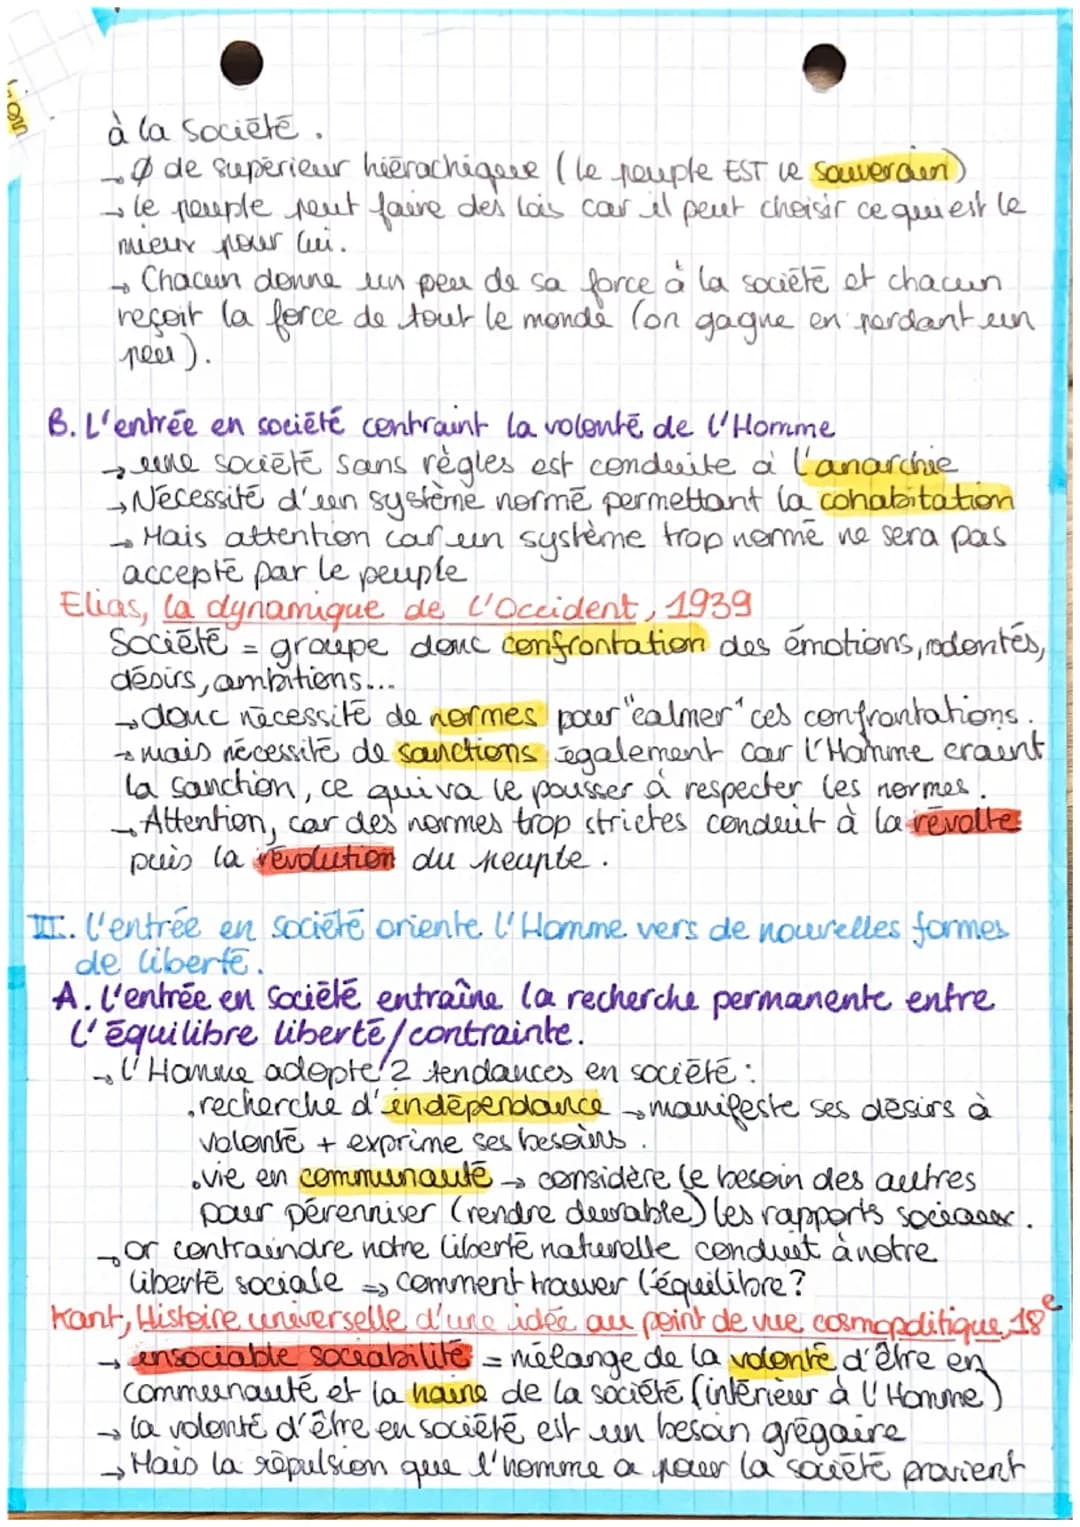 à la société.
→ Ø de supérieur hiérachique (le peuple EST le souverain)
→ le peuple peut faire des lois car il peut choisir ce qui est le
mieux pour lui.
→ Chacun donne un peu de sa force à la société et chacun
reçoit la force de tout le monde (on gagne en perdant un
peu).
B. L'entrée en société contraint la volonté de l'Homme
→ une société sans règles est conduite à l'anarchie
→ Nécessité d'un système normé permettant la cohabitation
→ Mais attention car un système trop normé ne sera pas
accepté par le peuple
Elias, la dynamique de l'Occident, 1939
Société = groupe donc confrontation des émotions, volontés,
désirs, ambitions...
→ donc nécessité de normes pour "calmer" ces confrontations.
→ mais nécessité de sanctions également car l'Homme craint
la sanction, ce qui va le pousser à respecter les normes.
→ Attention, car des normes trop strictes conduit à la révolte
puis la révolution du peuple.
III. L'entrée en société oriente l'Homme vers de nouvelles formes
de liberté.
A. L'entrée en société entraîne la recherche permanente entre
l'équilibre liberté/contrainte.
→ L'Homme adopte 2 tendances en société :
. recherche d'indépendance → manifeste ses désirs à
volonté + exprime ses besoins.
. vie en communauté → considère le besoin des autres
pour pérenniser (rendre durable) les rapports sociaux.
→ or contraindre notre liberté naturelle conduit à notre
liberté sociale => comment trouver l'équilibre?
Kant, Histoire universelle d'une idée au point de vue cosmopolitique, 18e
→ insociable sociabilité = mélange de la volonté d'être en
communauté et la haine de la société (intérieur à l'Homme)
→ la volonté d'être en société est un besoin grégaire
→ Mais la répulsion que l'homme a pour la société provient